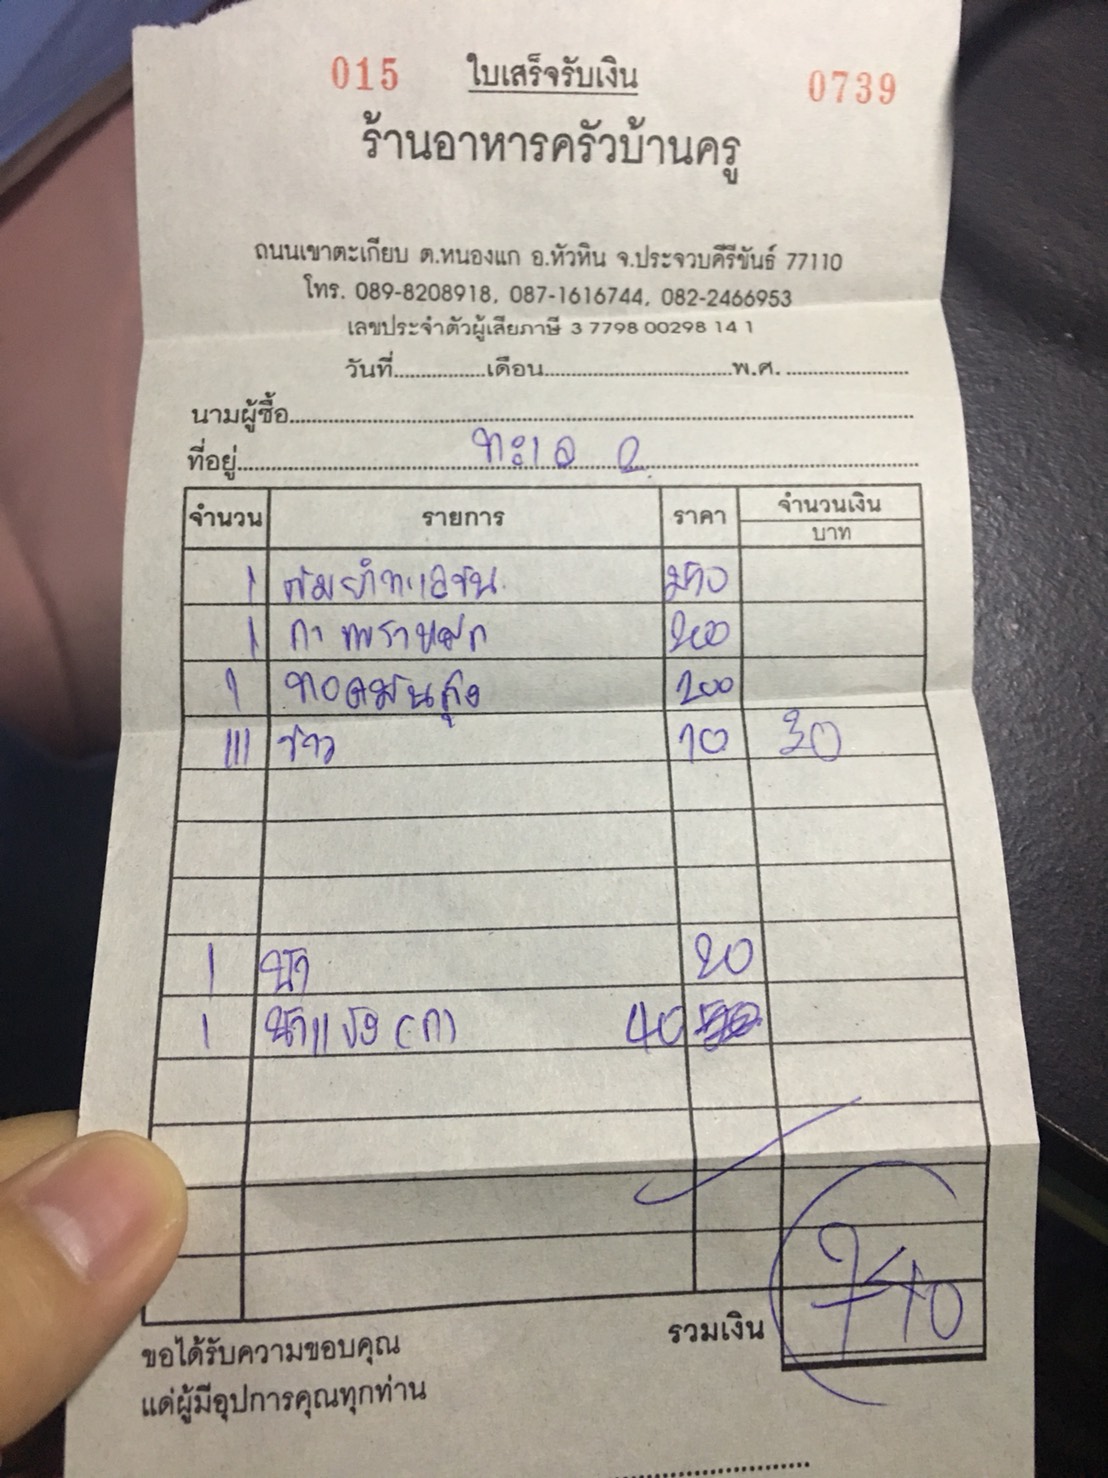 015 ใบเสร็จรับเงิน 0739
ร้านอาหารครัวบ้านครู
ถนนเขาตะเกียบ ต.หนองแก อ.หัวหิน จ.ประจวบคีรีขันธ์ 77110
โทร. 089-8208918, 087-1616744, 082-2466953
เลขประจำตัวผู้เสียภาษี 3 7798 00298 14 1
วันที่................เดือน................................พ.ศ. .....................
นามผู้ซื้อ................................................................
ที่อยู่ ทะเล 2
จำนวน รายการ ราคา จำนวนเงิน
บาท
1 ต้มยำทะเลข้น 250
1 กะเพราหมึก 200
1 ทอดมันกุ้ง 200
III ข้าว 10 30
1 น้ำ 20
1 น้ำแข็ง (ถ) 40
รวมเงิน 740
ขอได้รับความขอบคุณ
แด่ผู้มีอุปการคุณทุกท่าน